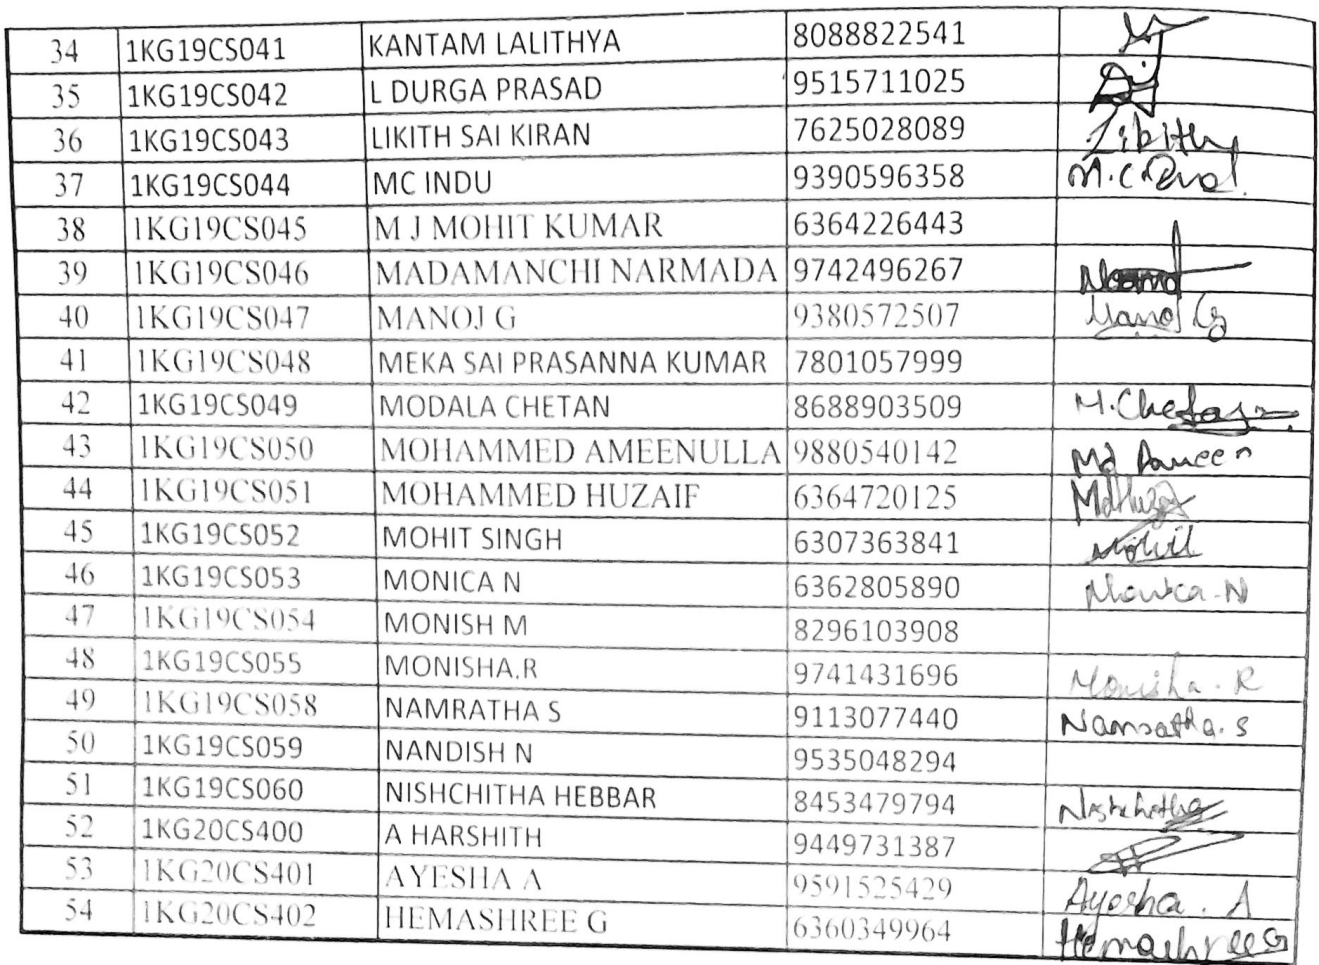 34 1KG19CS041 KANTAM LALITHYA 8088822541
35 1KG19CS042 L DURGA PRASAD 9515711025
36 1KG19CS043 LIKITH SAI KIRAN 7625028089 Likith
37 1KG19CS044 MC INDU 9390596358 M.C.
38 1KG19CS045 M J MOHIT KUMAR 6364226443
39 1KG19CS046 MADAMANCHI NARMADA 9742496267
40 1KG19CS047 MANOJ G 9380572507 Manoj G
41 1KG19CS048 MEKA SAI PRASANNA KUMAR 7801057999
42 1KG19CS049 MODALA CHETAN 8688903509 M.Chetan
43 1KG19CS050 MOHAMMED AMEENULLA 9880540142 Md
44 1KG19CS051 MOHAMMED HUZAIF 6364720125
45 1KG19CS052 MOHIT SINGH 6307363841 Mohit
46 1KG19CS053 MONICA N 6362805890 Monica.N
47 1KG19CS054 MONISH M 8296103908
48 1KG19CS055 MONISHA.R 9741431696 Monisha.R
49 1KG19CS058 NAMRATHA S 9113077440 Namratha.S
50 1KG19CS059 NANDISH N 9535048294
51 1KG19CS060 NISHCHITHA HEBBAR 8453479794 Nishchitha
52 1KG20CS400 A HARSHITH 9449731387
53 1KG20CS401 AYESHA A 9591525429 Ayesha. A
54 1KG20CS402 HEMASHREE G 6360349964 Hemashree G